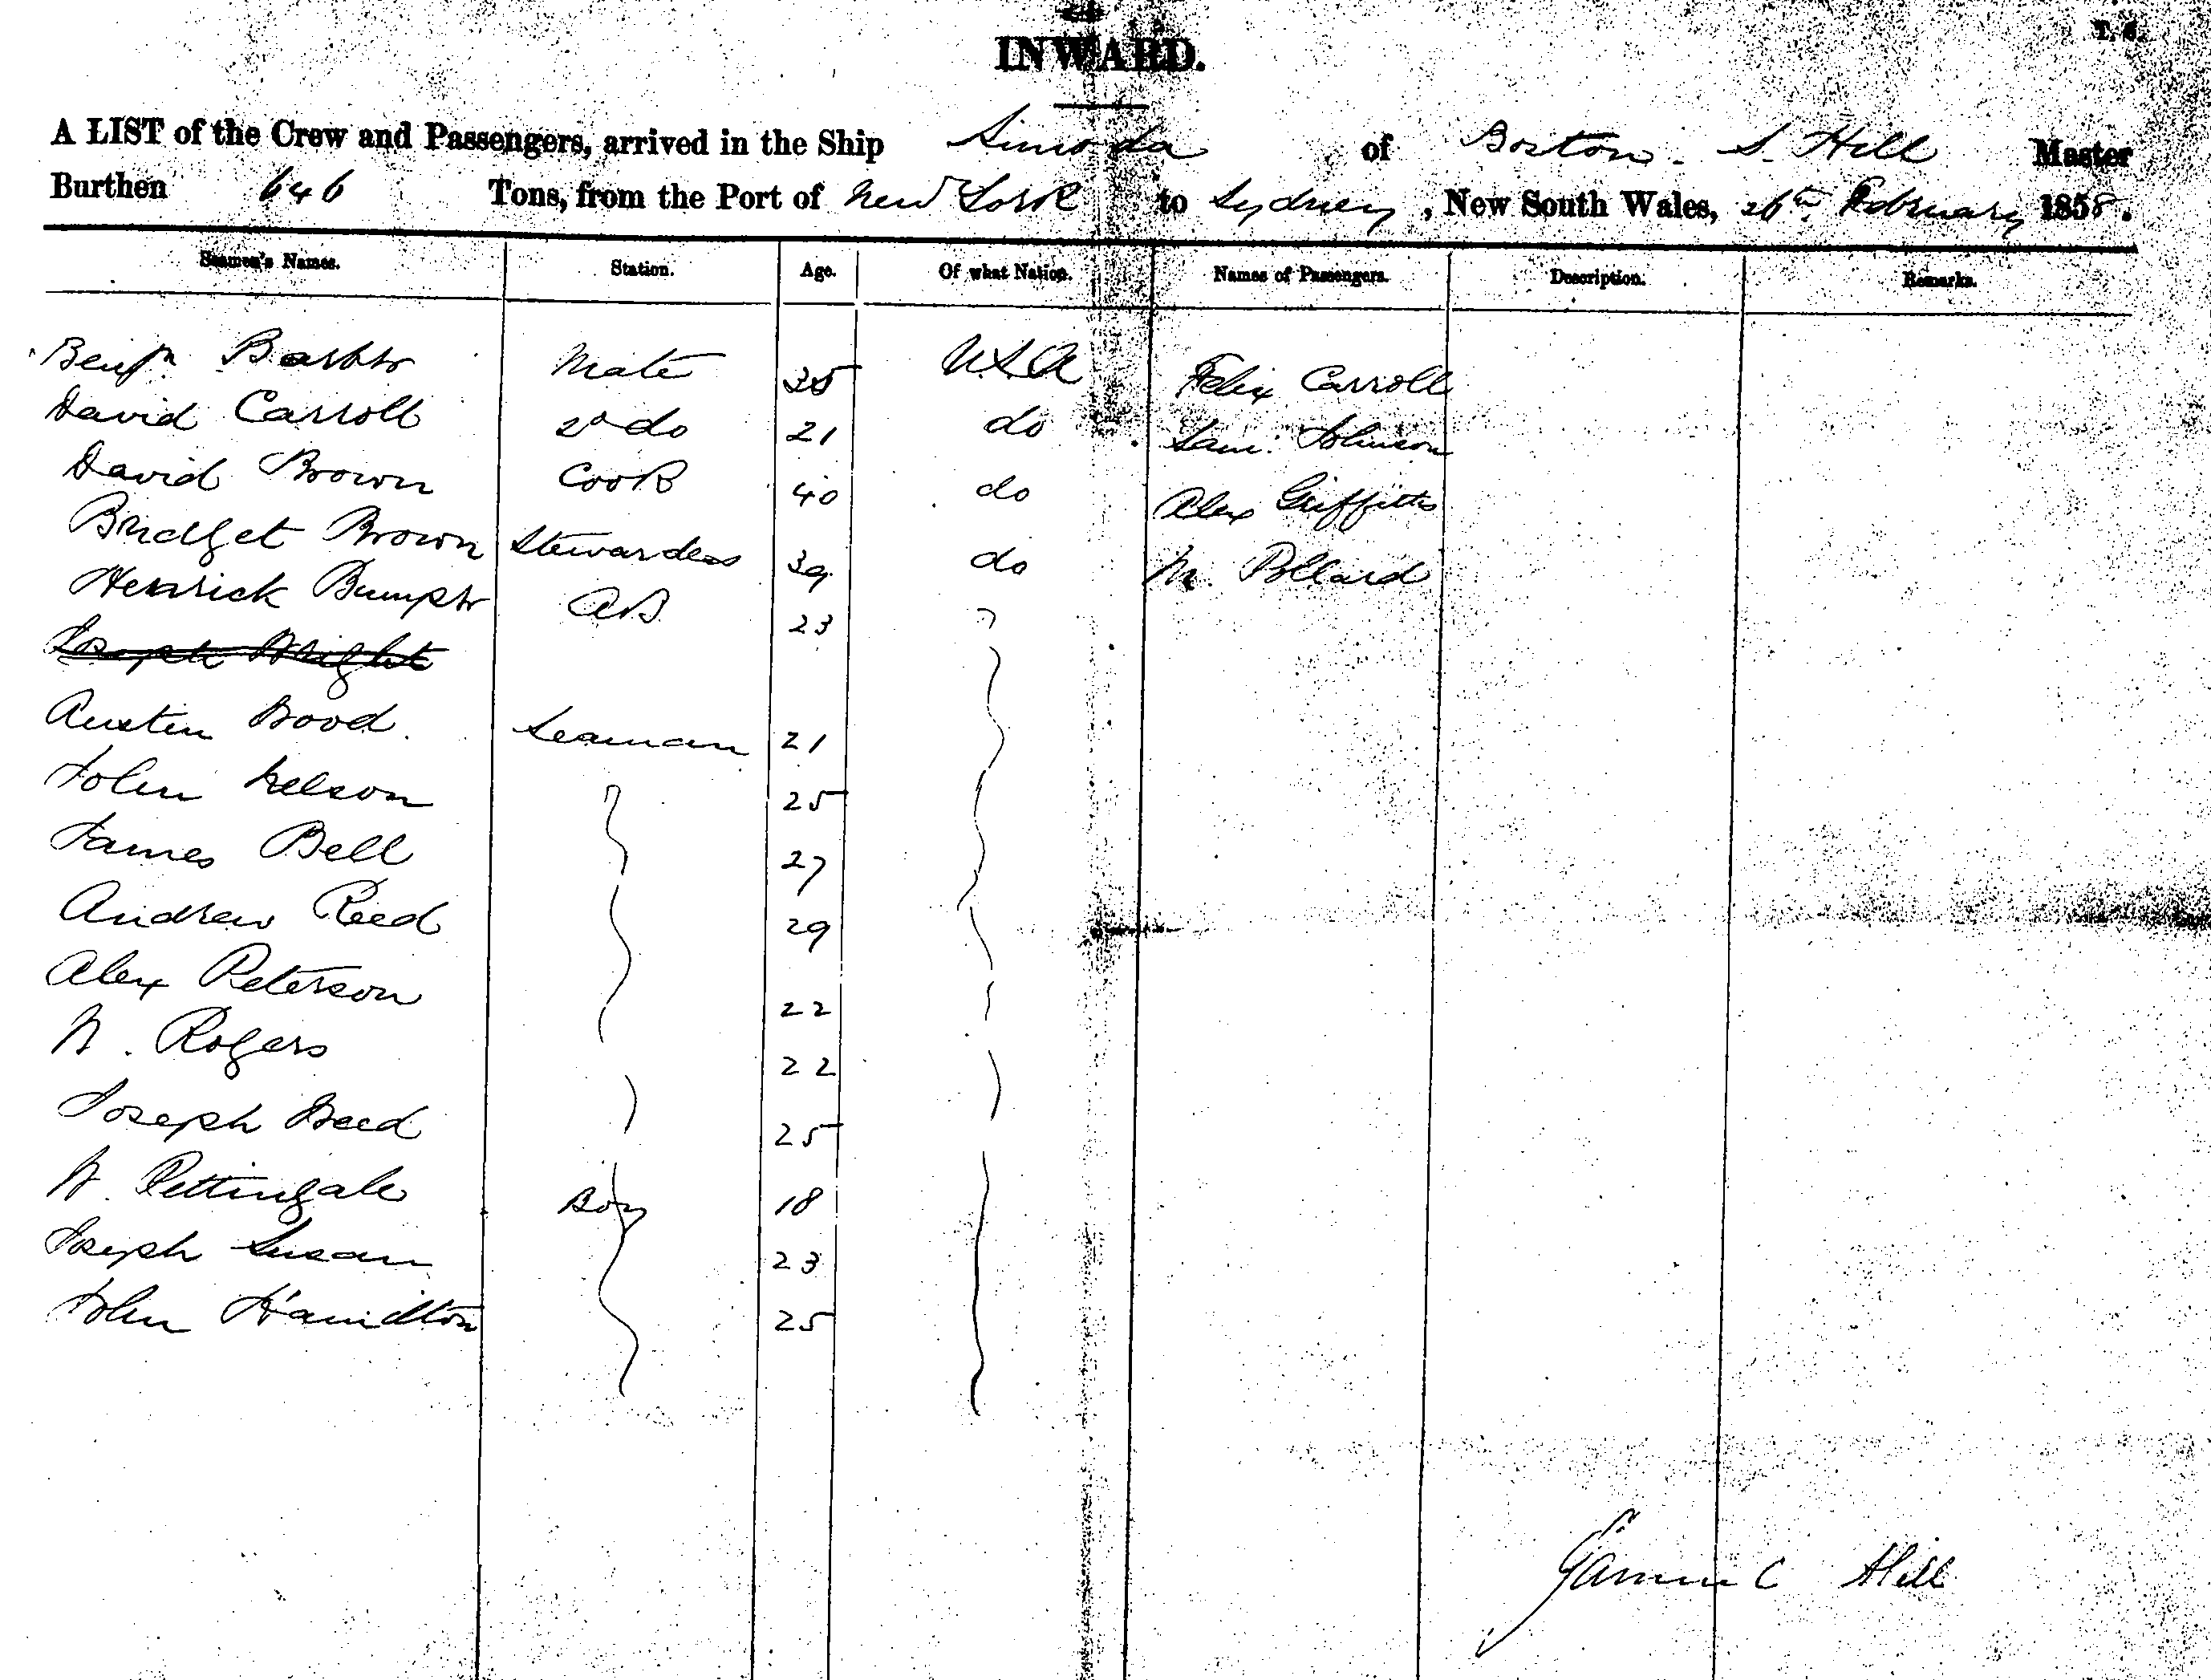 INWARD.
A LIST of the Crew and Passengers, arrived in the Ship Simoda of Boston. S. Hill Master
Burthen 646 Tons, from the Port of New York to Sydney, New South Wales, 26th February 1858.
Seamen's Names. Station. Age. Of what Nation. Names of Passengers. Description. Remarks.
Benjn Mate 35 U.S.A Felix Carroll
David Carroll 2d do 21 do Saml. Johnson
David Brown Cook 40 do Alex Griffiths
Bridget Brown Stewardess 39 do M. Pollard
Henrick AB 23
Joseph Wright
Austin Wood. Seaman 21
John Nelson 25
James Bell 27
Andrew Reed 29
Alex Peterson 22
W. Rogers 22
Joseph 25
W. Pettingale Boy 18
Joseph Susan 23
John Hamilton 25
Hill